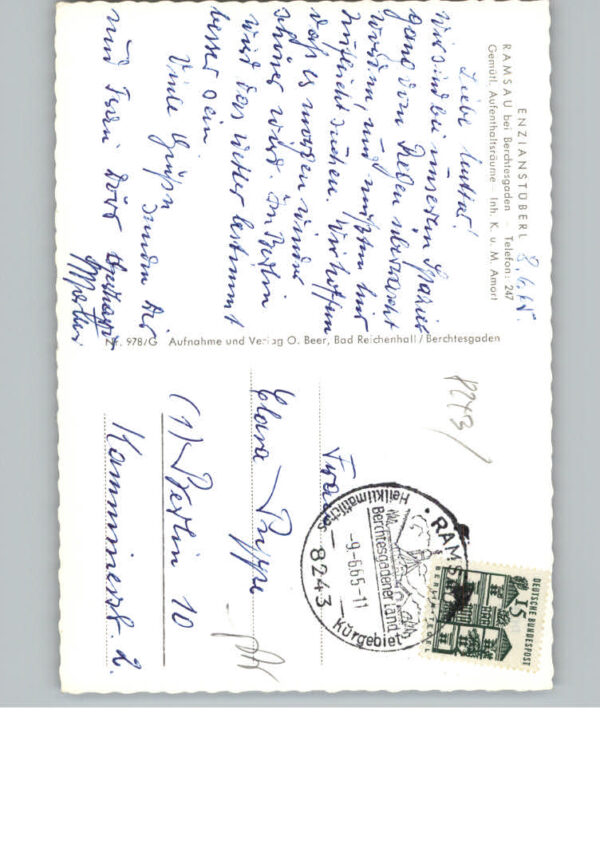 ENZIANSTÜBERL
RAMSAU bei Berchtesgaden Telefon: 247
Gemütl. Aufenthaltsräume Inh. K. u. M. Amort
8.6.65.
Liebe Mutter!
Wir sind bei unserem Spazier
gang vom Regen überrascht
worden, und mußten hier
Zuflucht suchen. Wir hoffen
daß es morgen wieder
schöner wird. In Berlin
wird das Wetter bestimmt
besser sein.
Viele Grüße senden Dir
und
Nr. 978/G Aufnahme und Verlag O. Beer, Bad Reichenhall / Berchtesgaden
8243
RAMS
Heilklimatisches
Berchtesgadener Land
-9-6.65-11
8243
Kurgebiet
15
DEUTSCHE BUNDESPOST
BERLIN-TEGEL
Frau
Clara
(1) Berlin 10
2.